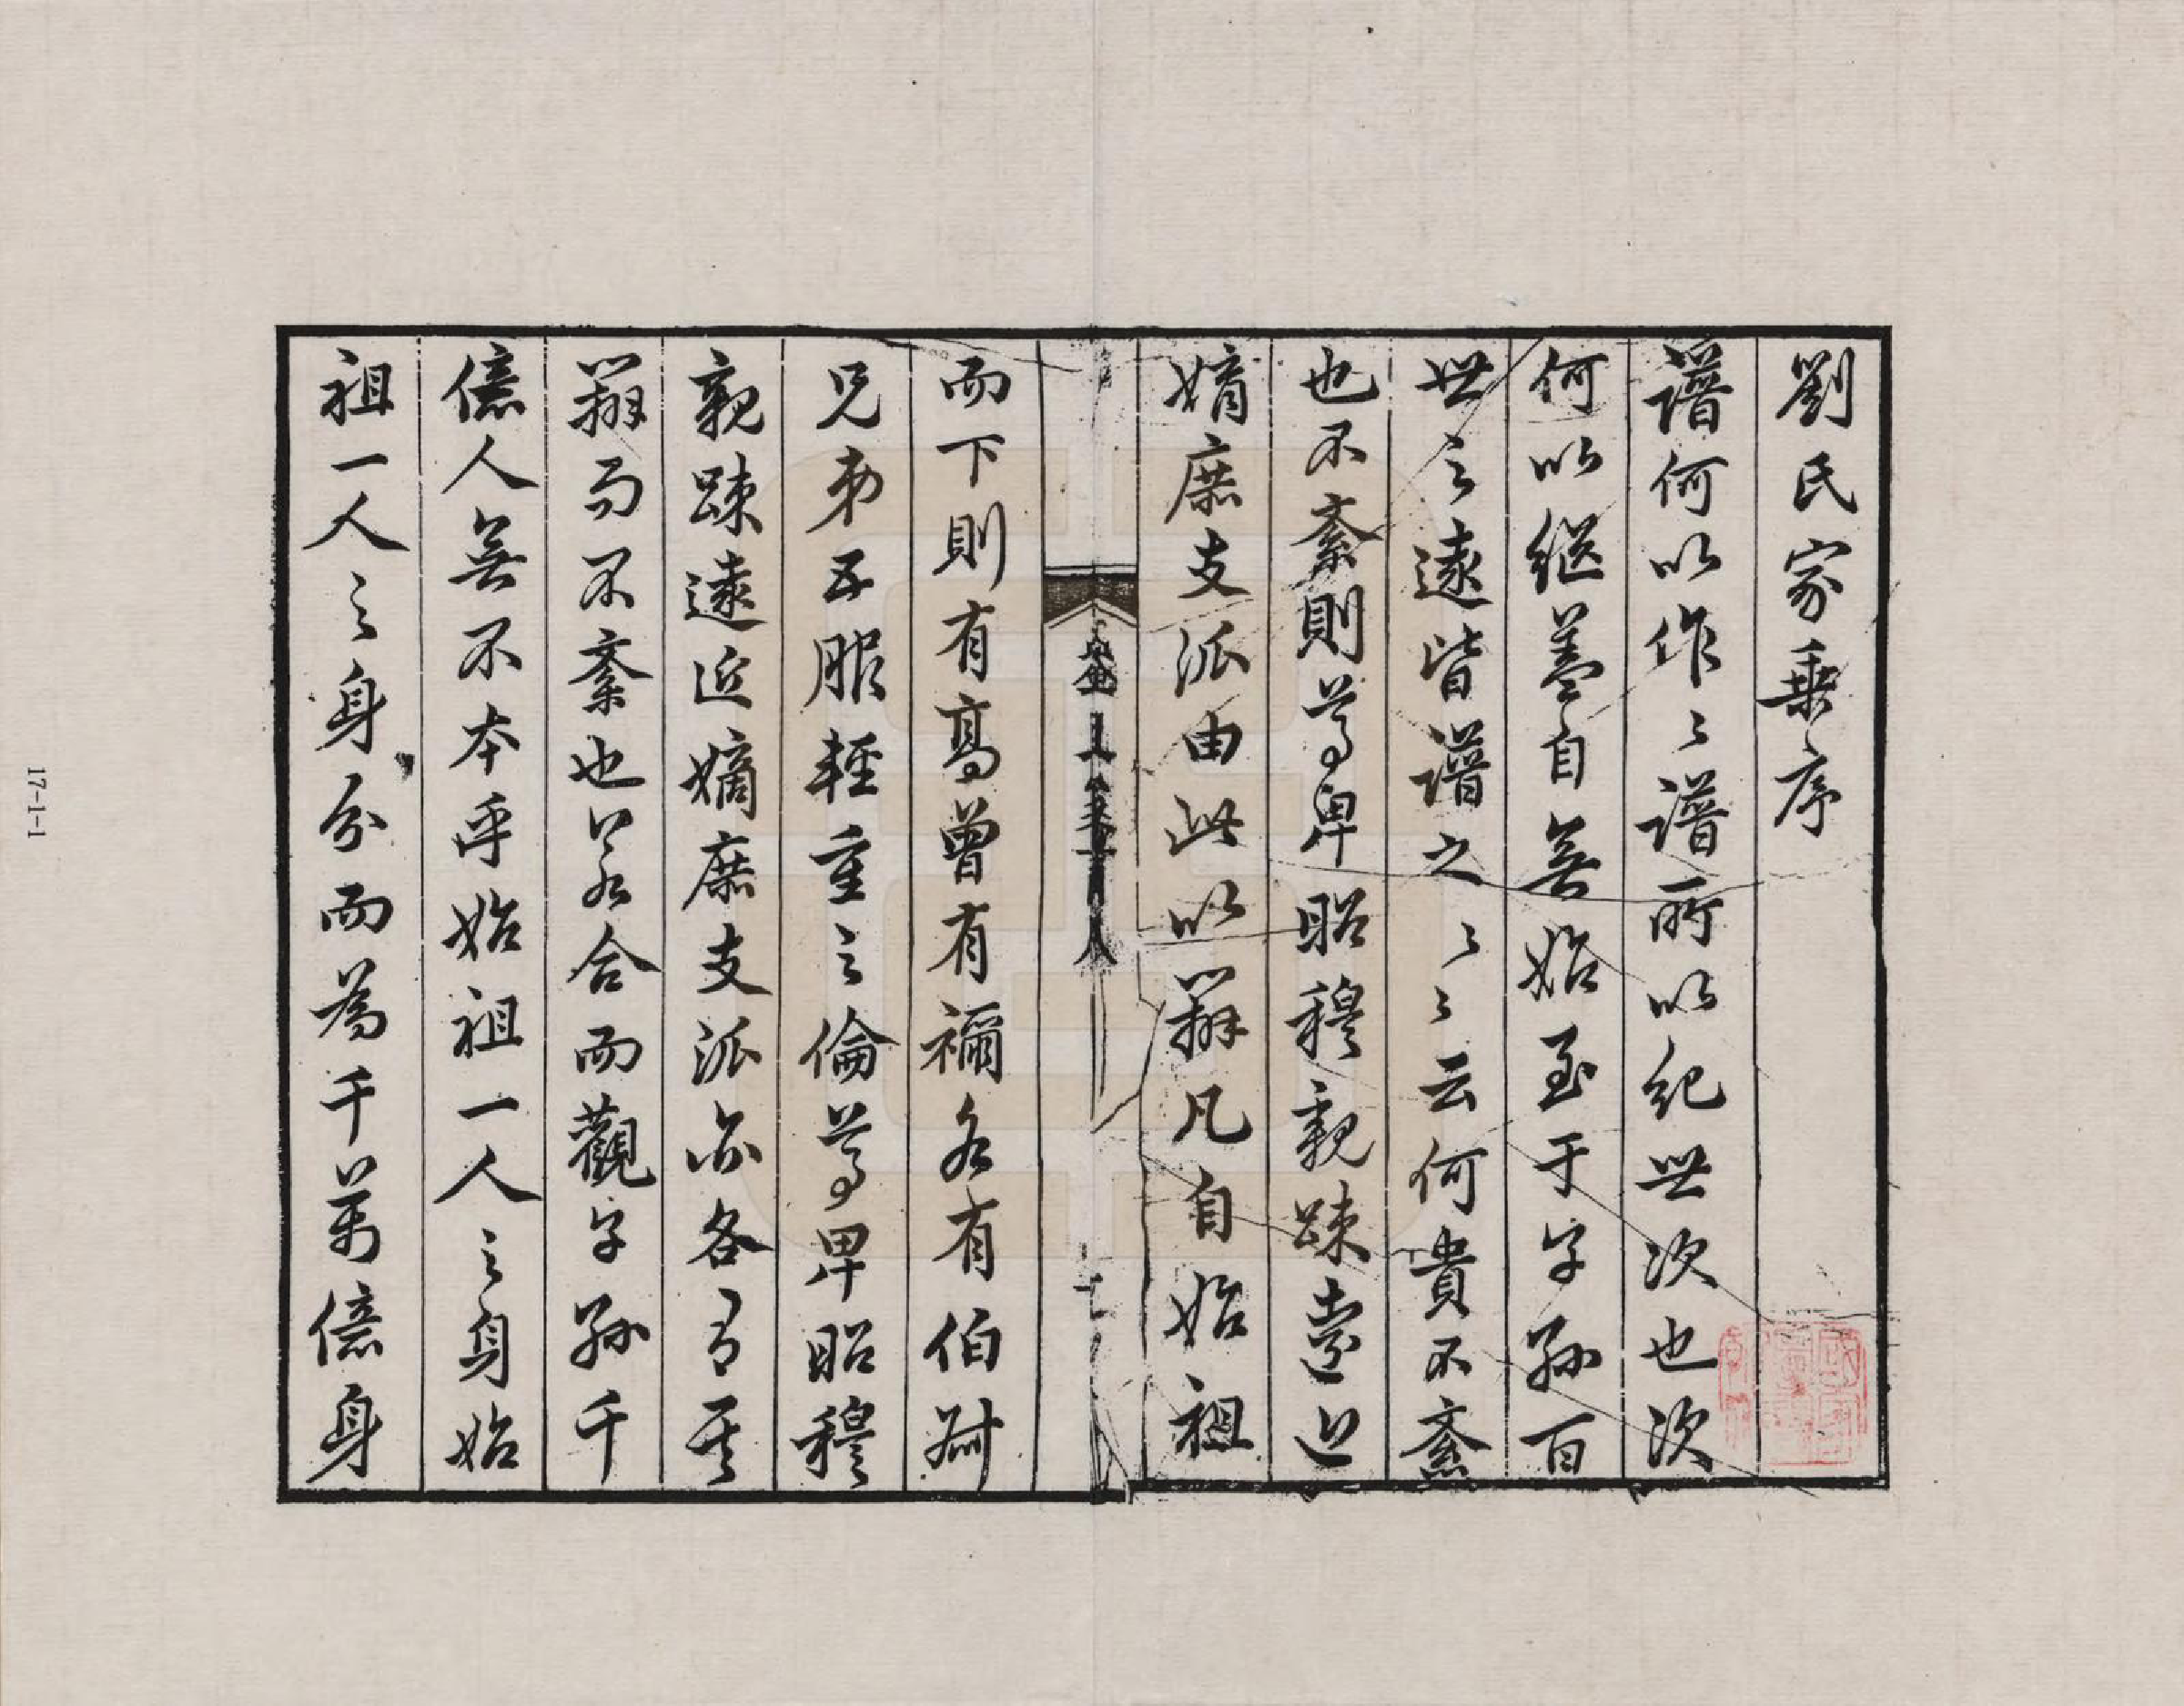 劉氏家乘序
譜何以作〻譜所以紀世次也次
何以継盖自無始至于子孫百
世之遠皆譜之〻〻云何貴不紊
也不紊則尊卑昭穆親踈遠近
嫡庶支派由此以辨凡自始祖
而下則有高曾有禰各有伯叔
兄弟五服輕重之倫尊卑昭穆
親踈遠近嫡庶支派亦各有其
辨而不紊也若合而觀子孫千
億人無不本乎始祖一人之身始
祖一人之身分而為千萬億身
17-1-1